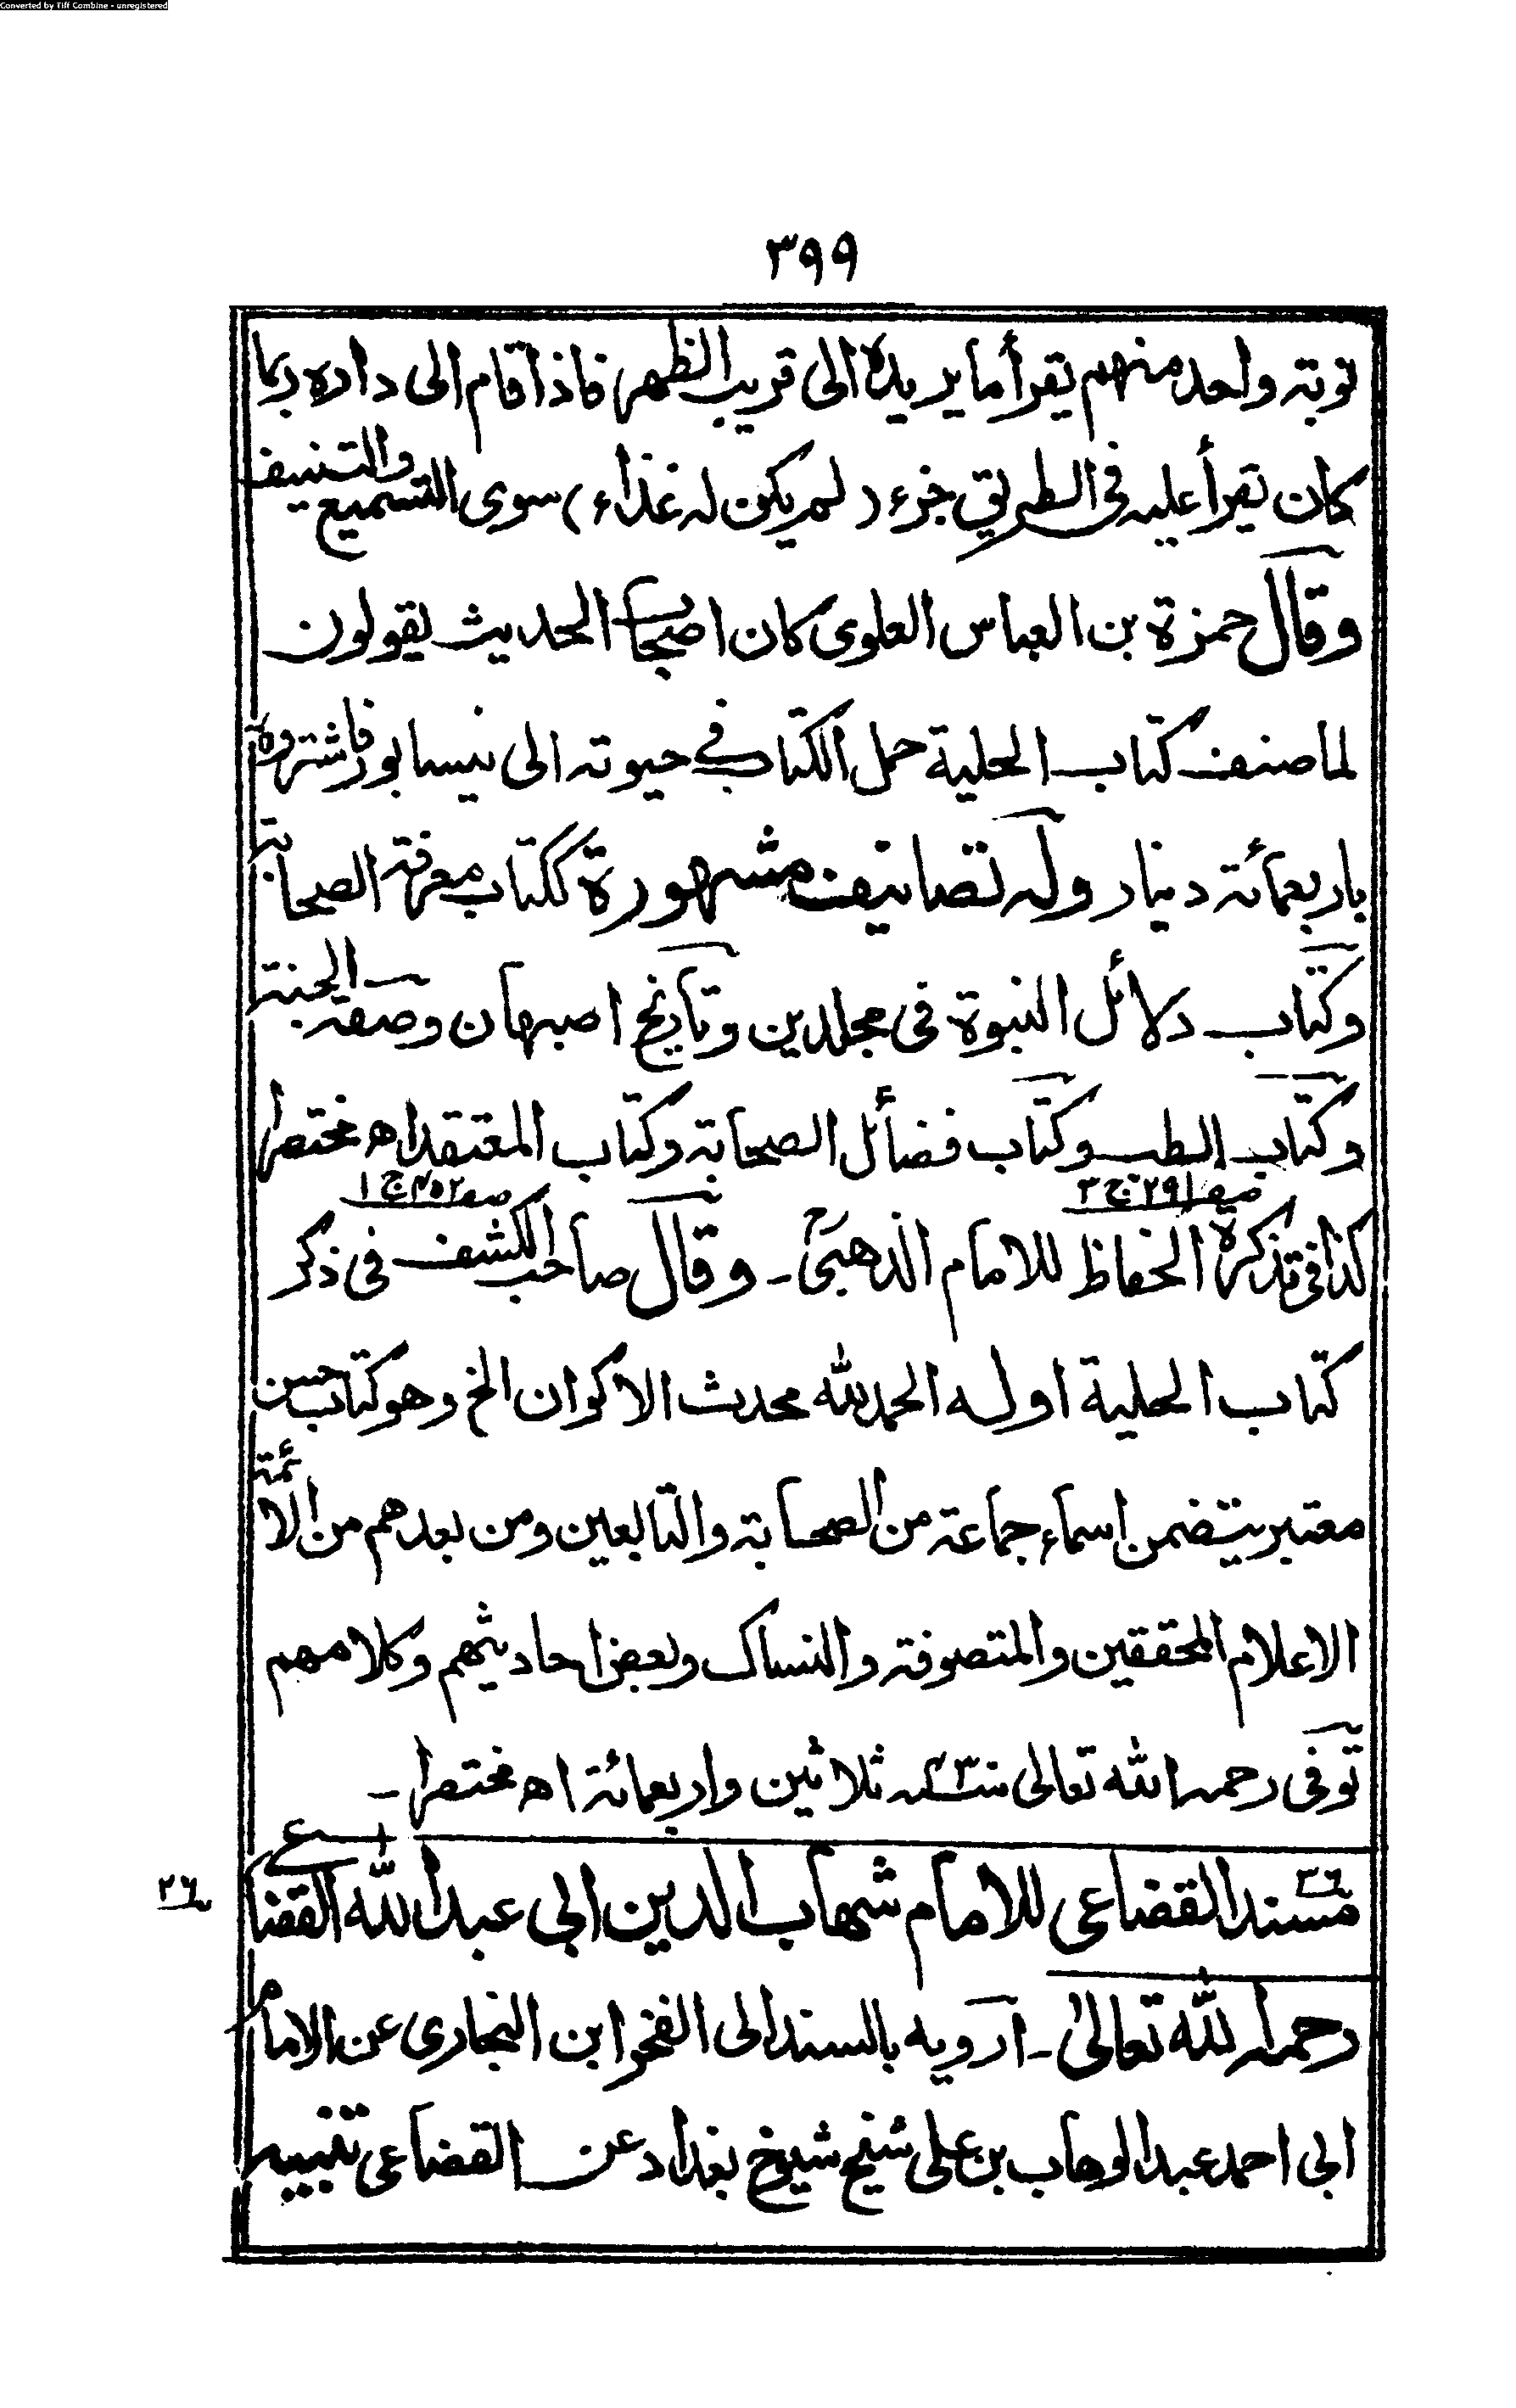 Converted by Tiff Combine - unregistered
٣٩٩
نوبة واحد منهم يقرأ ما يريده الى قريب الظهر فاذا قام الى داره ربما
كان يقرأ عليه فى الطريق جزء (لم يكن له غذاء) سوى التسميع والتصنيف
وقال حمزة بن العباس العلوى كان اصحاب الحديث يقولون
لما صنف كتاب الحلية حمل الكتاب فى حيوته الى نيسابور فاشتروه
باربعمائة دينار وله تصانيف مشهورة ككتاب معرفة الصحابة
وكتاب دلائل النبوة فى مجلدين وتاريخ اصبهان وصفة الجنة
وكتاب الطب وكتاب فضائل الصحابة وكتاب المعتقد اھ مختصرا
كذا فى تذكرة الحفاظ للامام الذهبىؒ - وقال صاحب الكشف فى ذكر
صـ ٢٩١ ج ٣
صـ ٤٥٢ ج ١
كتاب الحلية اوله الحمد لله محدث الاكوان الخ وهو كتاب حسن
معتبر يتضمن اسماء جماعة من الصحابة والتابعين ومن بعدهم من الائمة
الاعلام المحققين والمتصوفة والنساك وبعض احاديثهم وكلامهم
توفى رحمه الله تعالى سنة ٤٣٠ ثلاثين واربعمائة اھ مختصرا -
٣٦ مسند القضاعى للامام شهاب الدين ابى عبد الله القضاعى
٣٦
رحمه الله تعالىٰ - آرويه بالسند الى الفخر ابن البخارى عن الامام
ابى احمد عبد الوهاب بن على شيخ شيوخ بغداد عن القضاعى تنبيه